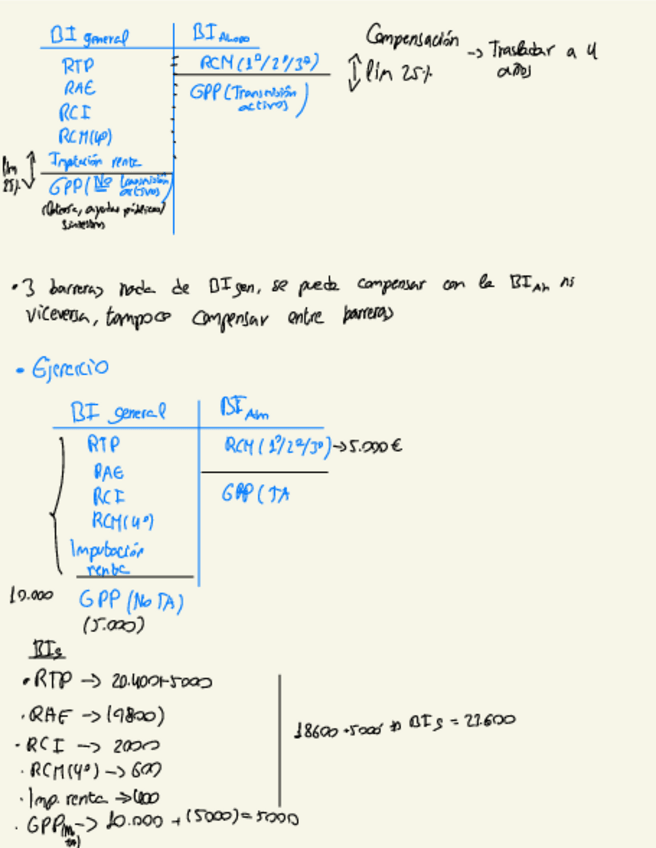 BI general
BI Ahorro
RTP
RCM (1º/2º/3º)
Compensación
lim 25%
-> Trasladar a 4
años
RAE
GPP (Transmisión
activos)
RCI
RCM(4º)
Imputación renta
lim
25%
GPP (No transmisión
activos)
(lotería, ayudas públicas)
siniestros
• 3 barreras nada de BI gen, se puede compensar con la BI Ah ni
viceversa, tampoco compensar entre barreras
• Ejercicio
BI general
BI Ahn
RTP
RCM (1º/2º/3º) -> 5.000 €
RAE
RCI
GPP (TA
RCM(4º)
Imputación
renta
10.000
GPP (No TA)
(5.000)
BIs
• RTP -> 20.400+5000
• RAE -> (9800)
• RCI -> 2000
18600 +5000 BI g = 23.600
• RCM(4º) -> 600
• Imp. renta -> 400
• GPP -> 10.000 + (5000) = 5000